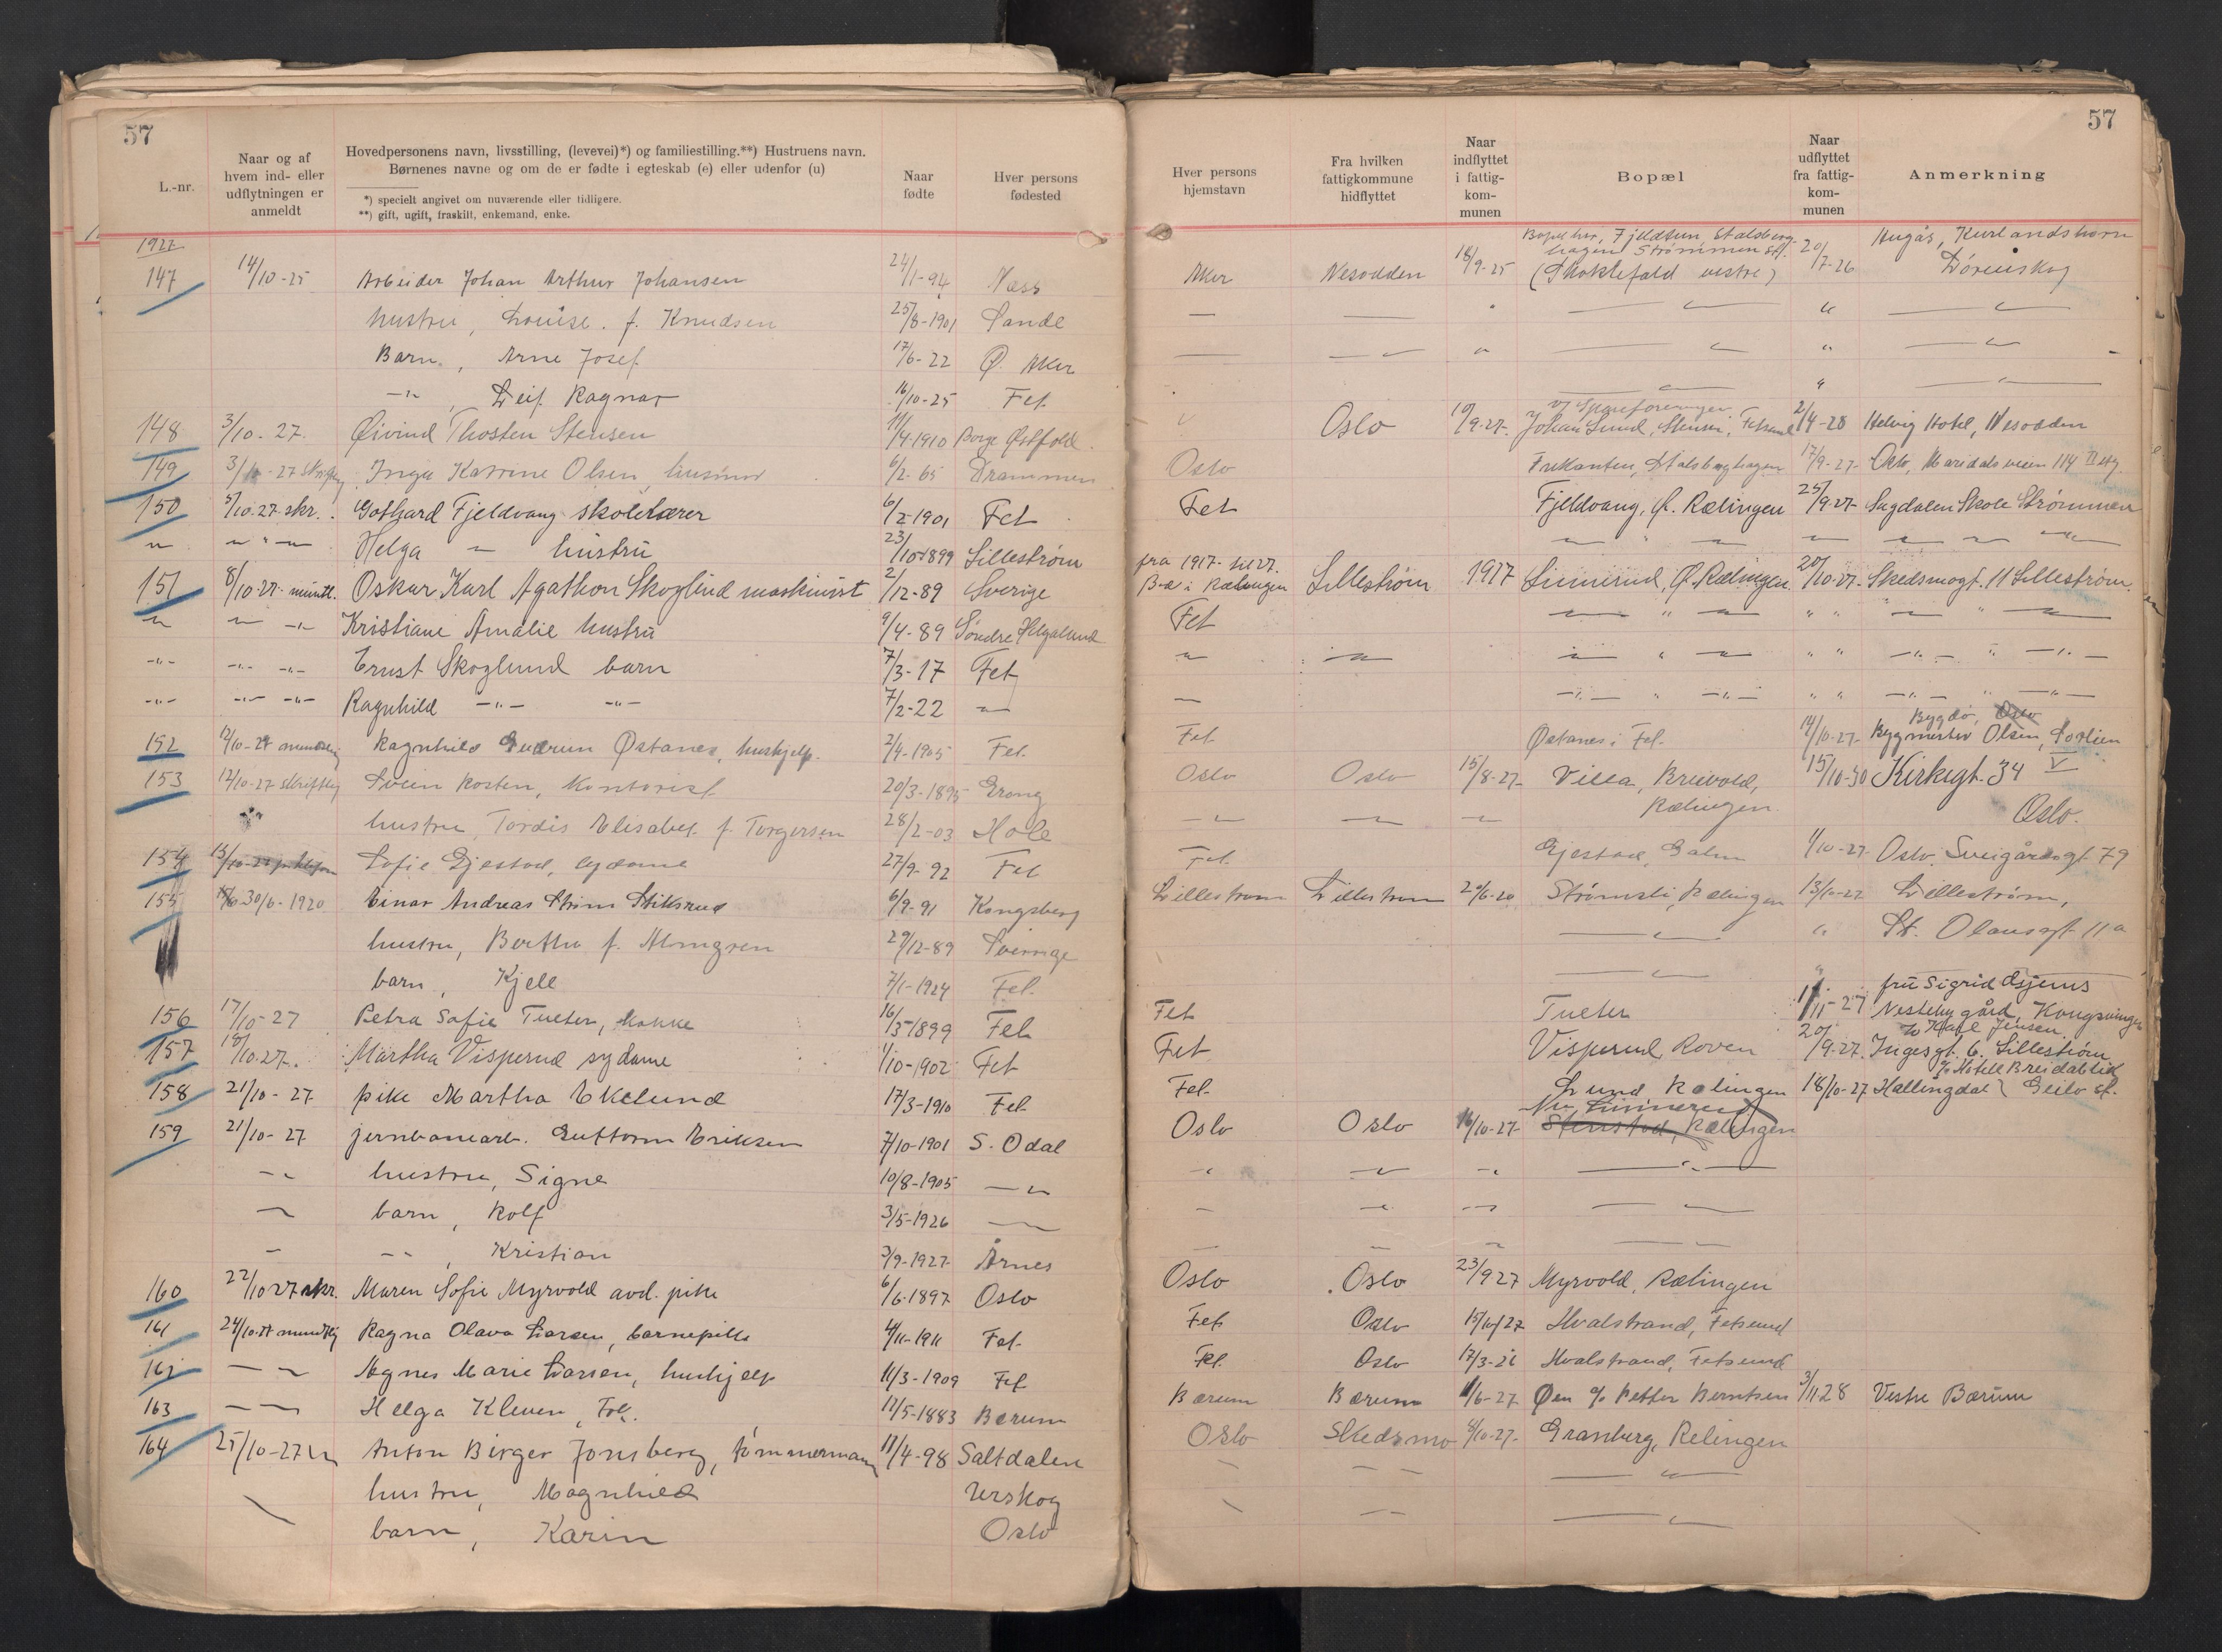 57
L.-nr.
Naar og af hvem ind- eller udflytningen er anmeldt
Hovedpersonens navn, livsstilling, (levevei)*) og familiestilling.**) Hustruens navn.
Børnenes navne og om de er fødte i egteskab (e) eller udenfor (u)
*) specielt angivet om nuværende eller tidligere.
**) gift, ugift, fraskilt, enkemand, enke.
Naar fødte
Hver persons fødested
1927
147 14/10-25 Arbeider Johan Arthur Johansen 24/1-94 Næss
hustru, Louise. f. Knudsen 25/8-1901 Sande
Barn, Arne Josef 17/6-22 Ø. Aker
-"-, Leif Ragnar 16/10-25 Fet
148 3/10-27. Øivind Thosten Stensen 11/4 1910 Borge Østfold.
149 3/10-27 Inga Katrine Olsen, husmor 6/2-65 Drammen
150 5/10.27. skr. Gothard Fjeldvang skolelærer 6/2-1901 Fet
" " " " Helga " hustru 23/10-1899 Lillestrøm
151 8/10-27. muntl. Oskar Karl Agathon Skoglund maskinist 2/12-89 Sverige
" " " Kristiane Amalie hustru 9/4-89 Søndre Helgeland
-"- -"- -"- Ernst Skoglund barn 7/3-17 Fet
-"- -"- -"- Ragnhild -"- -"- 7/2-22 "
152 12/10-27 Ragnhild Gudrun Østanes, hushjelp. 2/4-1905 Fet.
153 12/10-27 skriftlig Svein Rosten, Kontorist 20/3-1895 Grong
hustru, Tordis Elisabet f. Torgersen 28/2-03 Hole
154 Sofie Gjestad, sydame 27/9-92 Fet
155 30/6-1920 Einar Andreas Strøm Stiksrud 6/9-91 Kongsberg
hustru, Bertha f. Almgren 29/12-89 Sverrige
barn, Kjell 7/1-1924 Fet.
156 17/10-27 Petra Sofie Tueter, kokke 16/5-1899 Fet
157 18/10.27. Martha Visperud sydame 1/10-1902 Fet
158 21/10-27 pike Martha Ekelund 17/3-1910 Fet
159 21/10-27 jernbanearb. Guttorm Eriksen 7/10-1901 S. Odal
-"- hustru, Signe 10/8-1905 -"-
" barn, Rolf 3/5-1926 "
- -"-, Kristian 3/9-1927 Årnes
160 22/10 27 skr. Maren Sofie Myrvold avd. pike 6/6.1897 Oslo
161 24/10-27 mundtlig Ragna Olava Larsen, barnepike 4/11-1911 Fet.
162 -"- Agnes Marie Larsen, hushjelp 11/3-1909 Fet
163 -"- Helga Kleven, Frk. 12/5-1883 Bærum
164 25/10-27 " Anton Birger Jonsberg, tømmermann 11/4-98 Saltdalen
hustru, Magnhild Urskog
barn, Karin Oslo
57
Hver persons hjemstavn
Fra hvilken fattigkommune hidflyttet
Naar indflyttet i fattigkommunen
Bopæl
Naar udflyttet fra fattigkommunen
Anmerkning
Bopel her, Fjeldtun Stalsberghagen Strømmen st.
Aker Nesodden 18/9-25 (Skoklefald vestre) 20/7-26 Haugås, Kurlandshorn Lørenskog
Oslo 10/9-27- Johan Lund, Stensr, Fetsund 2/4-28 Helvig Hotel, Nesodden
Oslo Frekanten, Stalsberghagen 17/9-27- Oslo, Maridalsveien 114 II etg
Fet Fjeldvang, Ø. Rælingen 25/9-27- Sagdalen Skole Strømmen
fra 1917 til 27.
B-d i Rælingen Lillestrøm 1917 Linnerud, Ø. Rælingen. 20/10-27- Skedsmogt. 11 Lillestrøm.
Fet
Bygdø, Oslo
Fet Østanes i Fet. 14/10-27- Bygmester Olsen,
Oslo Oslo 15/8-27- Villa, Breivold, Rælingen. 15/10-30 Kirkegt. 34 V Oslo.
Fet Gjestad, Galm 1/10-27- Oslo. Sveigårdsgt 79
Lillestrøm Lillestrøm 29/6-20 Strømsli, Rælingen 13/10-27 Lillestrøm,
St. Olausgt 11a
fru Sigrid
Fet Tueter 1/11-27 Nesteby gård, Kongsvinger
Fet Visperud Roven 20/9-27. Ingesgt. 6. Lillestrøm
Fet Lund Rælingen 18/10-27 Hallingdal Hotell Breidablikk Geilo st.
Nu, Linnerud
Oslo Oslo 16/10-27- Stenstad, Rælingen
Oslo Oslo 23/9 27 Myrvold, Rælingen
Fet Oslo 15/10/27 Hvalstrand, Fetsund
Fet. Oslo 17/3-26 Hvalstrand, Fetsund
Bærum Bærum 1/6-27 Øen c/o Petter Berntsen 3/11 28 Vestre Bærum
Oslo Skedsmo 8/10-27- Granberg, Relingen